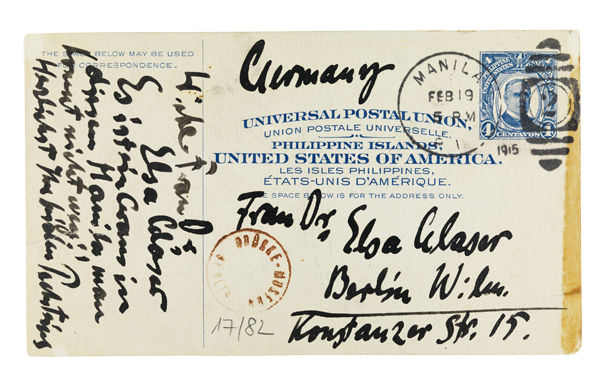 THE SPACE BELOW MAY BE USED
FOR CORRESPONDENCE.
Frau Dr
Elsa Glaser
Es ist ein Graus in
diesem Manila man
kommt nicht weg
Germany
UNIVERSAL POSTAL UNION.
UNION POSTALE UNIVERSELLE.
PHILIPPINE ISLANDS.
UNITED STATES OF AMERICA.
LES ISLES PHILIPPINES,
ÉTATS-UNIS D'AMÉRIQUE.
THE SPACE BELOW IS FOR THE ADDRESS ONLY.
MANILA
FEB 19
5 PM
P.I.
1915
4 4
CENTAVOS
Frau Dr
Elsa Glaser
Berlin Wilm.
Konstanzer Str. 15.
BRÜCKE-MUSEUM BERLIN
17/82